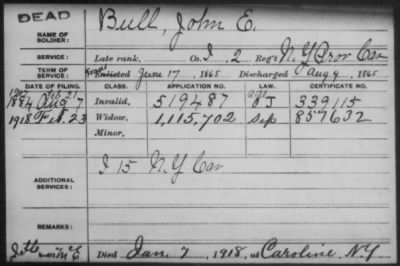 DEAD
NAME OF SOLDIER: Bull, John E.
SERVICE: Late rank, Co. I, 2 Reg't N.Y. Prov Cav
TERM OF SERVICE: Enlisted June 17, 1865 Discharged Aug 9, 1865
DATE OF FILING. CLASS. APPLICATION NO. LAW. CERTIFICATE NO.
1884 Aug 7 Invalid, 519487 J 339115
1918 Feb. 23 Widow, 1,115,702 Sep 857632
Minor,
ADDITIONAL SERVICES: I 15 N.Y. Cav
REMARKS:
Died Jan. 7, 1918, at Caroline, N.Y.